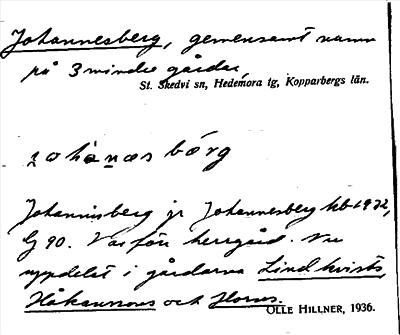 Johannesberg, gemensamt namn
på 3 mindre gårdar
St. Skedvi sn, Hedemora tg, Kopparbergs län.
johanæs bärg
Johannisberg jr Johannesberg kb 1932,
G 90. Var förr herrgård. Nu
uppdelat i gårdarna Lindkvists,
Håkannons och Horns.
OLLE HILLNER, 1936.